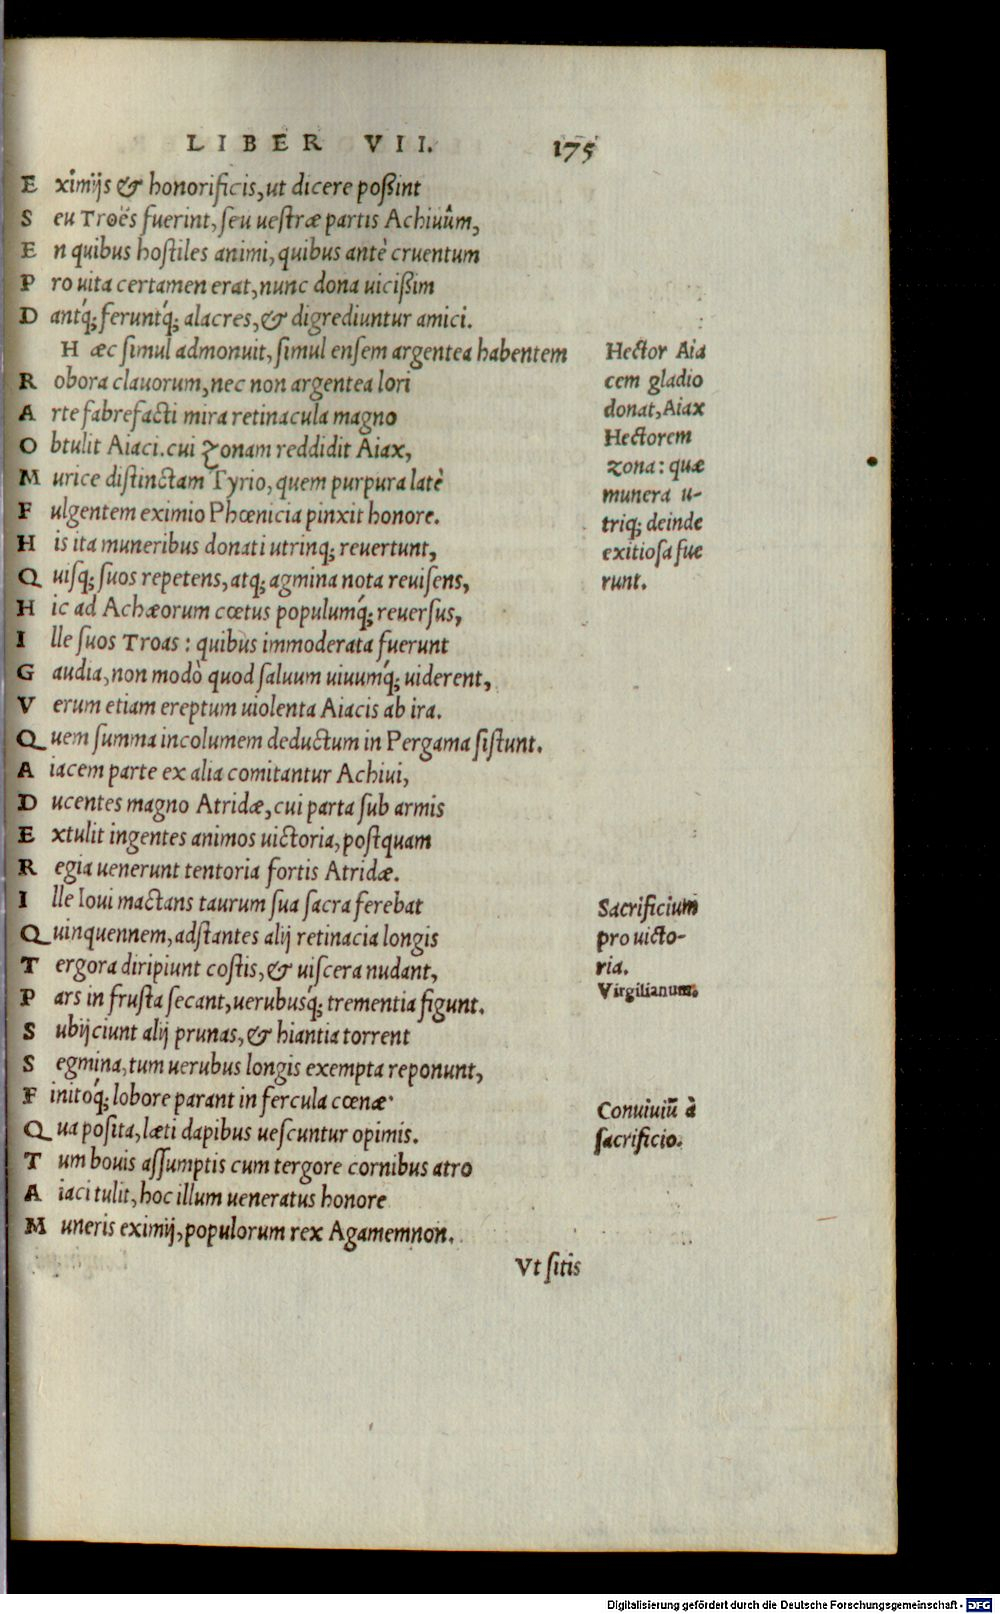 LIBER VII. 175
Eximijs & honorificis, ut dicere poßint
Seu Troës fuerint, seu uestræ partis Achiuûm,
En quibus hostiles animi, quibus antè cruentum
Pro uita certamen erat, nunc dona uicißim
Dantq́; feruntq́; alacres, & digrediuntur amici.
Hæc simul admonuit, simul ensem argentea habentem
Robora clauorum, nec non argentea lori
Arte fabrefacti mira retinacula magno
Obtulit Aiaci. cui zonam reddidit Aiax,
Murice distinctam Tyrio, quem purpura latè
Fulgentem eximio Phœnicia pinxit honore.
His ita muneribus donati utrinq; reuertunt,
Quisq; suos repetens, atq; agmina nota reuisens,
Hic ad Achæorum cœtus populumq́; reuersus,
Ille suos Troas: quibus immoderata fuerunt
Gaudia, non modò quod saluum uiuumq́; uiderent,
Verum etiam ereptum uiolenta Aiacis ab ira.
Quem summa incolumem deductum in Pergama sistunt.
Aiacem parte ex alia comitantur Achiui,
Ducentes magno Atridæ, cui parta sub armis
Extulit ingentes animos uictoria, postquam
Regia uenerunt tentoria fortis Atridæ.
Ille Ioui mactans taurum sua sacra ferebat
Quinquennem, adstantes alij retinacia longis
Tergora diripiunt costis, & uiscera nudant,
Pars in frusta secant, uerubusq́; trementia figunt.
Subijciunt alij prunas, & hiantia torrent
Segmina, tum uerubus longis exempta reponunt,
Finitoq́; lobore parant in fercula cœnæ
Qua posita, læti dapibus uescuntur opimis.
Tum bouis assumptis cum tergore cornibus atro
Aiaci tulit, hoc illum ueneratus honore
Muneris eximij, populorum rex Agamemnon.
Vt sitis
Hector Aia
cem gladio
donat, Aiax
Hectorem
zona: quæ
munera u-
triq; deinde
exitiosa fue
runt.
Sacrificium
pro uicto-
ria.
Virgilianum.
Conuiuiũ à
sacrificio.
Digitalisierung gefördert durch die Deutsche Forschungsgemeinschaft - DFG